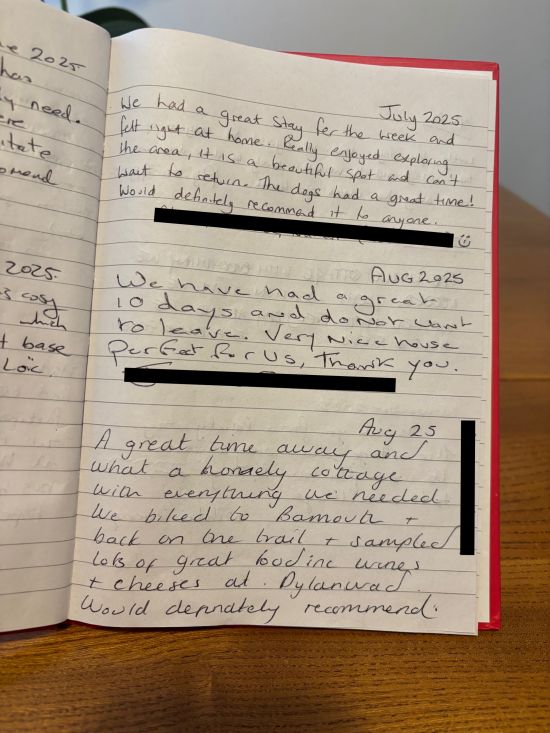 e 2025
has
ly need.
ere
itate
omend
2025.
is cosy
which
t base
Loïc.
July 2025
We had a great stay for the week and
felt right at home. Really enjoyed exploring
the area, it is a beautiful spot and can't
wait to return. The dogs had a great time!
Would definitely recommend it to anyone.
AUG 2025
We have had a great
10 days and do Not want
to leave. Very Nice house
Perfect for us, Thank you.
Aug 25
A great time away and
what a homely cottage
with everything we needed.
We biked to Barmouth +
back on the trail + sampled
lots of great food inc wines
+ cheeses at Dylanwad.
Would definately recommend.